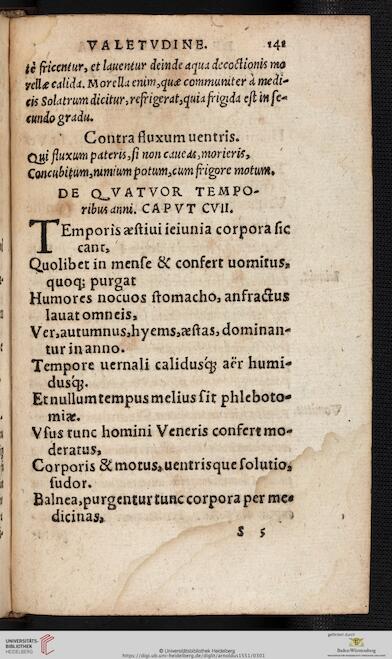 VALETVDINE. 141
tè fricentur, et lauentur deinde aqua decoctionis mo
rellæ calida. Morella enim, quæ communiter à medi-
cis Solatrum dicitur, refrigerat, quia frigida est in se-
cundo gradu.
Contra fluxum uentris.
Qui fluxum pateris, si non caueas, morieris,
Concubitum, nimium potum, cum frigore motum.
DE QVATVOR TEMPO-
ribus anni. CAPVT CVII.
TEmporis æstiui ieiunia corpora sic
cant,
Quolibet in mense & confert uomitus,
quoq; purgat
Humores nocuos stomacho, anfractus
lauat omneis,
Ver, autumnus, hyems, æstas, dominan-
tur in anno.
Tempore uernali calidusq́; aër humi-
dusq́;.
Et nullum tempus melius sit phleboto-
miæ.
Vsus tunc homini Veneris confert mo-
deratus,
Corporis & motus, uentrisque solutio,
sudor.
Balnea, purgentur tunc corpora per me-
dicinas,
S 5
UNIVERSITÄTS-
BIBLIOTHEK
HEIDELBERG
© Universitätsbibliothek Heidelberg
https://digi.ub.uni-heidelberg.de/diglit/arnoldus1551/0301
gefördert durch
Baden-Württemberg